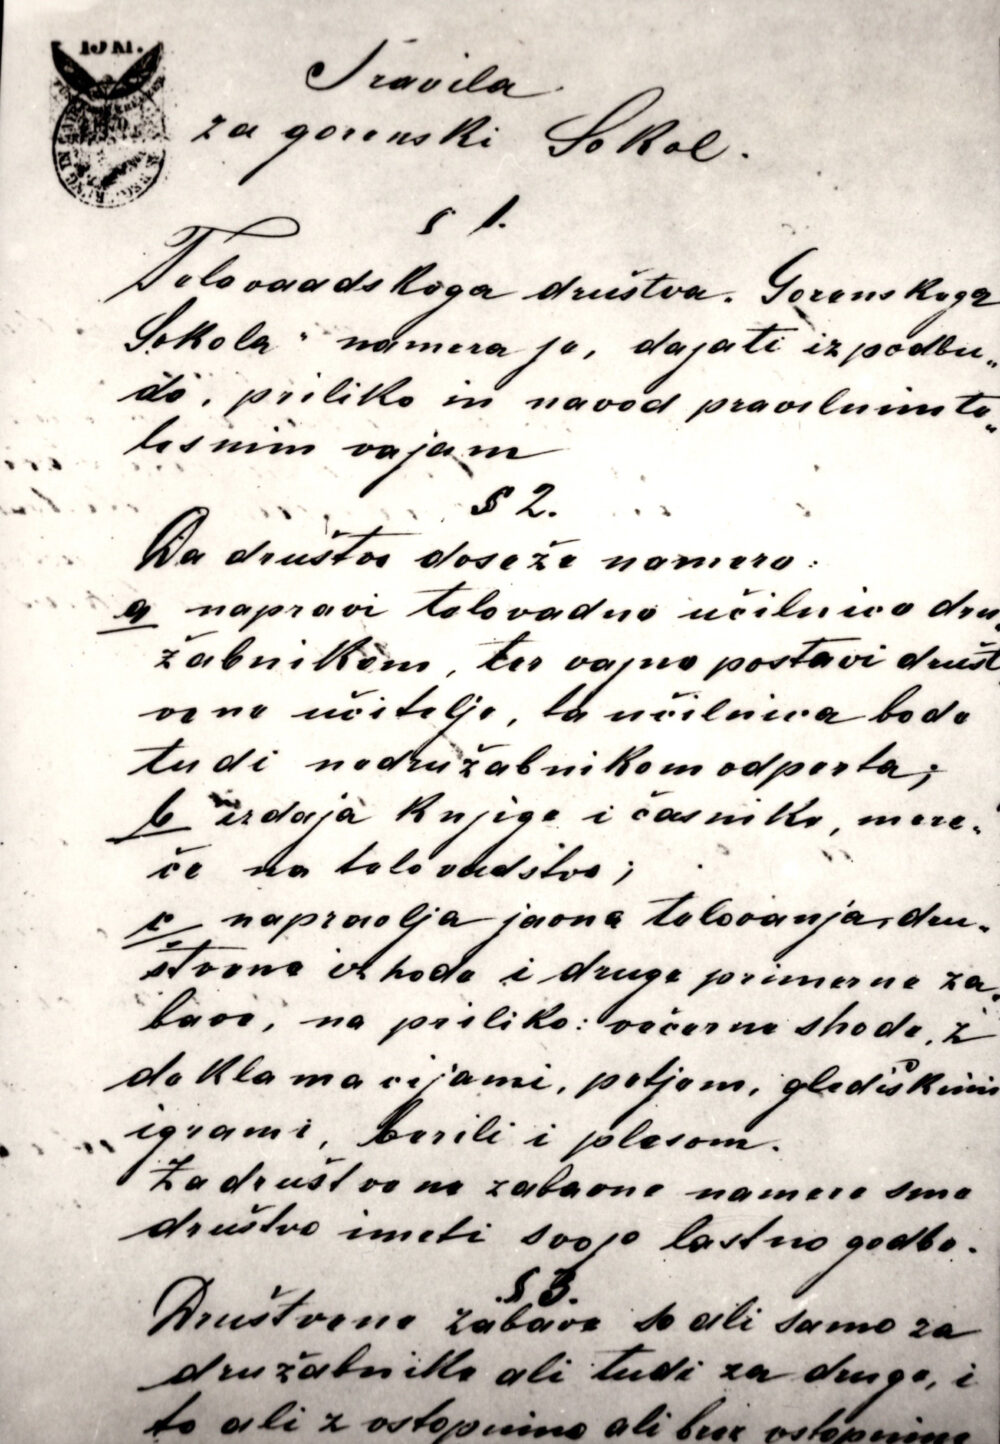 15 KR.
Pravila
za gorenski Sokol.
§ 1.
Telovaadskega društva. Gorenskega
Sokola" namera je, dajati izpodbu„
do, priliko in navod pravilnim te„
lesnim vajam
§ 2.
Da društvo doseže namero:
a napravi telovadno učilnico dru„
žabnikom, ter vajne postavi društ
vene učitelje, ta učilnica bode
tudi nedružabnikom odperta;
b izdaja knjige i časnike, mere„
če na telovadstvo;
c napravlja javna telovanja, dru„
štvene izhode i druge primerne za„
bave, na priliko: večerne shode, z
deklamacijami, petjem, glediškimi
igrami, berili i plesom.
Za društvene zabavne namere sme
društvo imeti svojo lastno godbo.
§ 3.
Društvene zabave so ali samo za
družabnike ali tudi za druge, i
to ali z vstopnino ali brez vstopnine